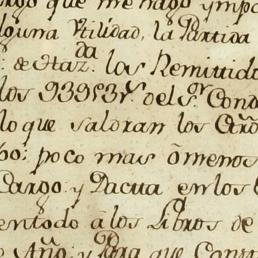 que me hago ymp
alguna Vtilidad, la Partida
da
de Haz. los Remitido
los 93953 rs. del Sr. Cond
lo que saldran los Año
poco mas ò menos
Cargo y Dacua en los
entodo â los Libros de
Año; y Para que Const